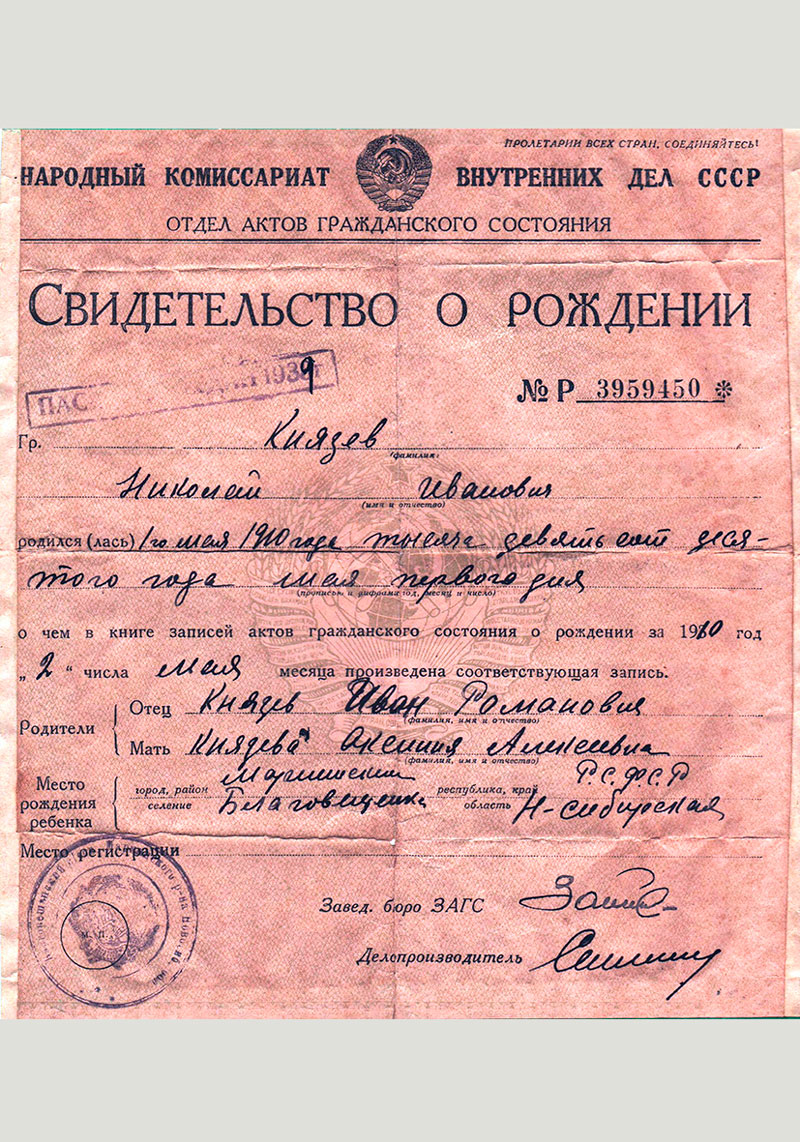 ПРОЛЕТАРИИ ВСЕХ СТРАН, СОЕДИНЯЙТЕСЬ!
НАРОДНЫЙ КОМИССАРИАТ ВНУТРЕННИХ ДЕЛ СССР
ОТДЕЛ АКТОВ ГРАЖДАНСКОГО СОСТОЯНИЯ
СВИДЕТЕЛЬСТВО О РОЖДЕНИИ
ПАС
№ Р 3959450
Гр. Князев
(фамилия)
Николай Иванович
(имя и отчество)
родился (лась) 1го мая 1910 года тысяча девятьсот деся-
того года мая первого дня
(прописью и цифрами год, месяц и число)
о чем в книге записей актов гражданского состояния о рождении за 1910 год
„2" числа мая месяца произведена соответствующая запись.
Родители
Отец Князев Иван Романович
(фамилия, имя и отчество)
Мать Князева Аксиния Алексеевна
(фамилия, имя и отчество)
Место рождения ребенка
город, район Мариинский республика, край Р.С.Ф.С.Р
селение Благовещенка область Н-сибирская
Место регистрации
М. П.
Завед. бюро ЗАГС
Делопроизводитель